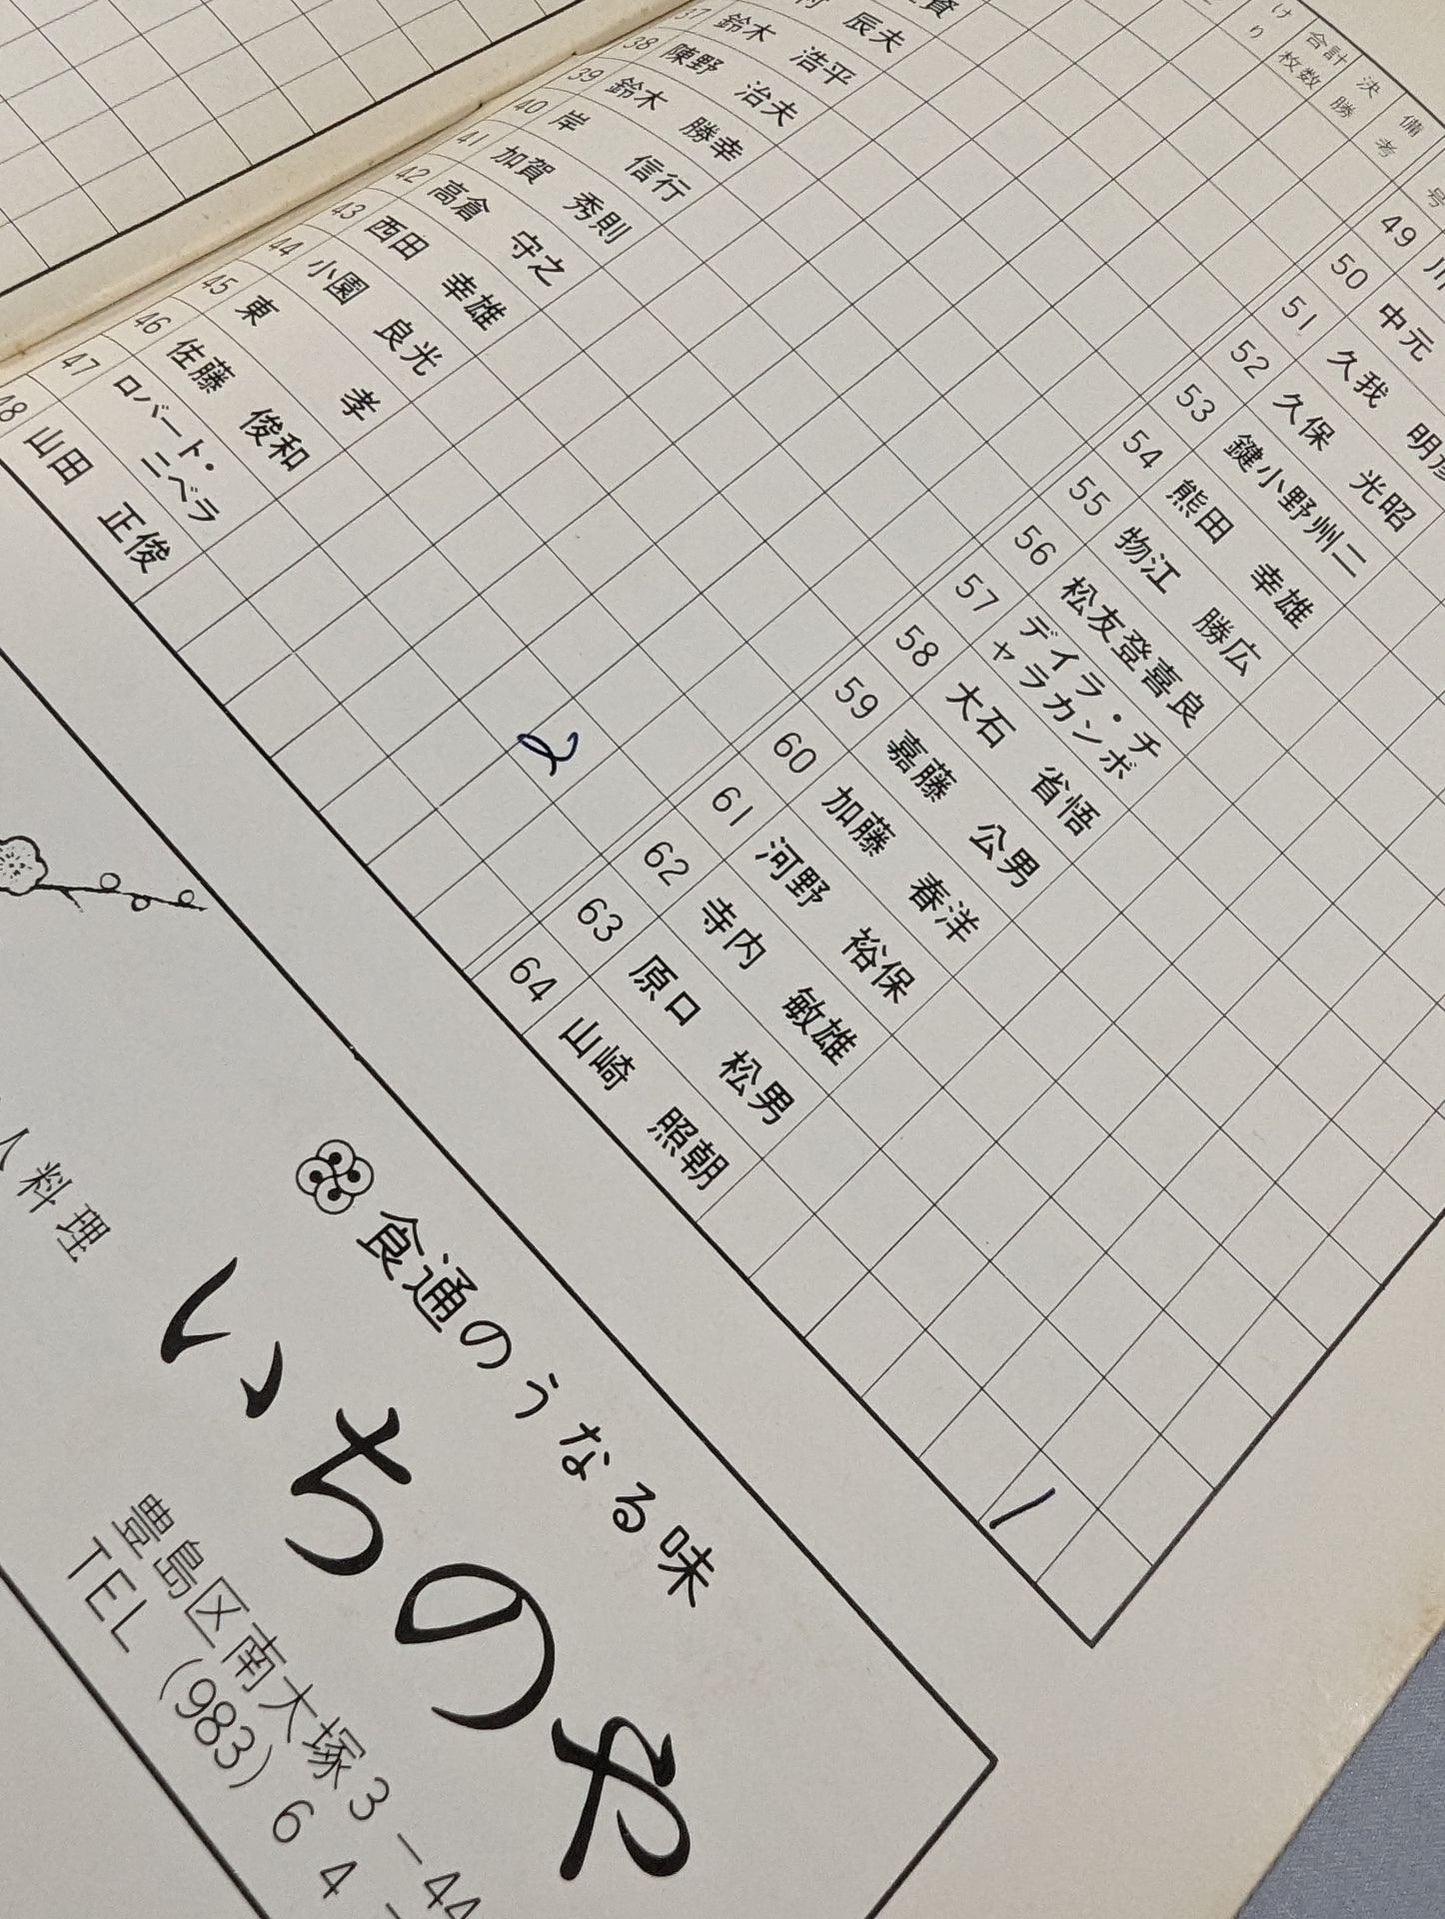 け
り
合計
枚数
決
勝
備
考
号
辰夫
37 鈴木 浩平
38 陳野 治夫
39 鈴木 勝幸
40 岸 信行
41 加賀 秀則
42 高倉 守之
43 西田 幸雄
44 小園 良光
45 東 孝
46 佐藤 俊和
47 ロバート・
ニベラ
48 山田 正俊
2
49 川
50 中元
51 久我 明彦
52 久保 光昭
53 鍵小野州二
54 熊田 幸雄
55 物江 勝広
56 松友登喜良
57 デイラ・チ
ャラカンボ
58 大石 省悟
59 嘉藤 公男
60 加藤 春洋
61 河野 裕保
62 寺内 敏雄
63 原口 松男
64 山崎 照朝
1
料理
食通のうなる味
いちのや
豊島区南大塚3-44
TEL (983) 64